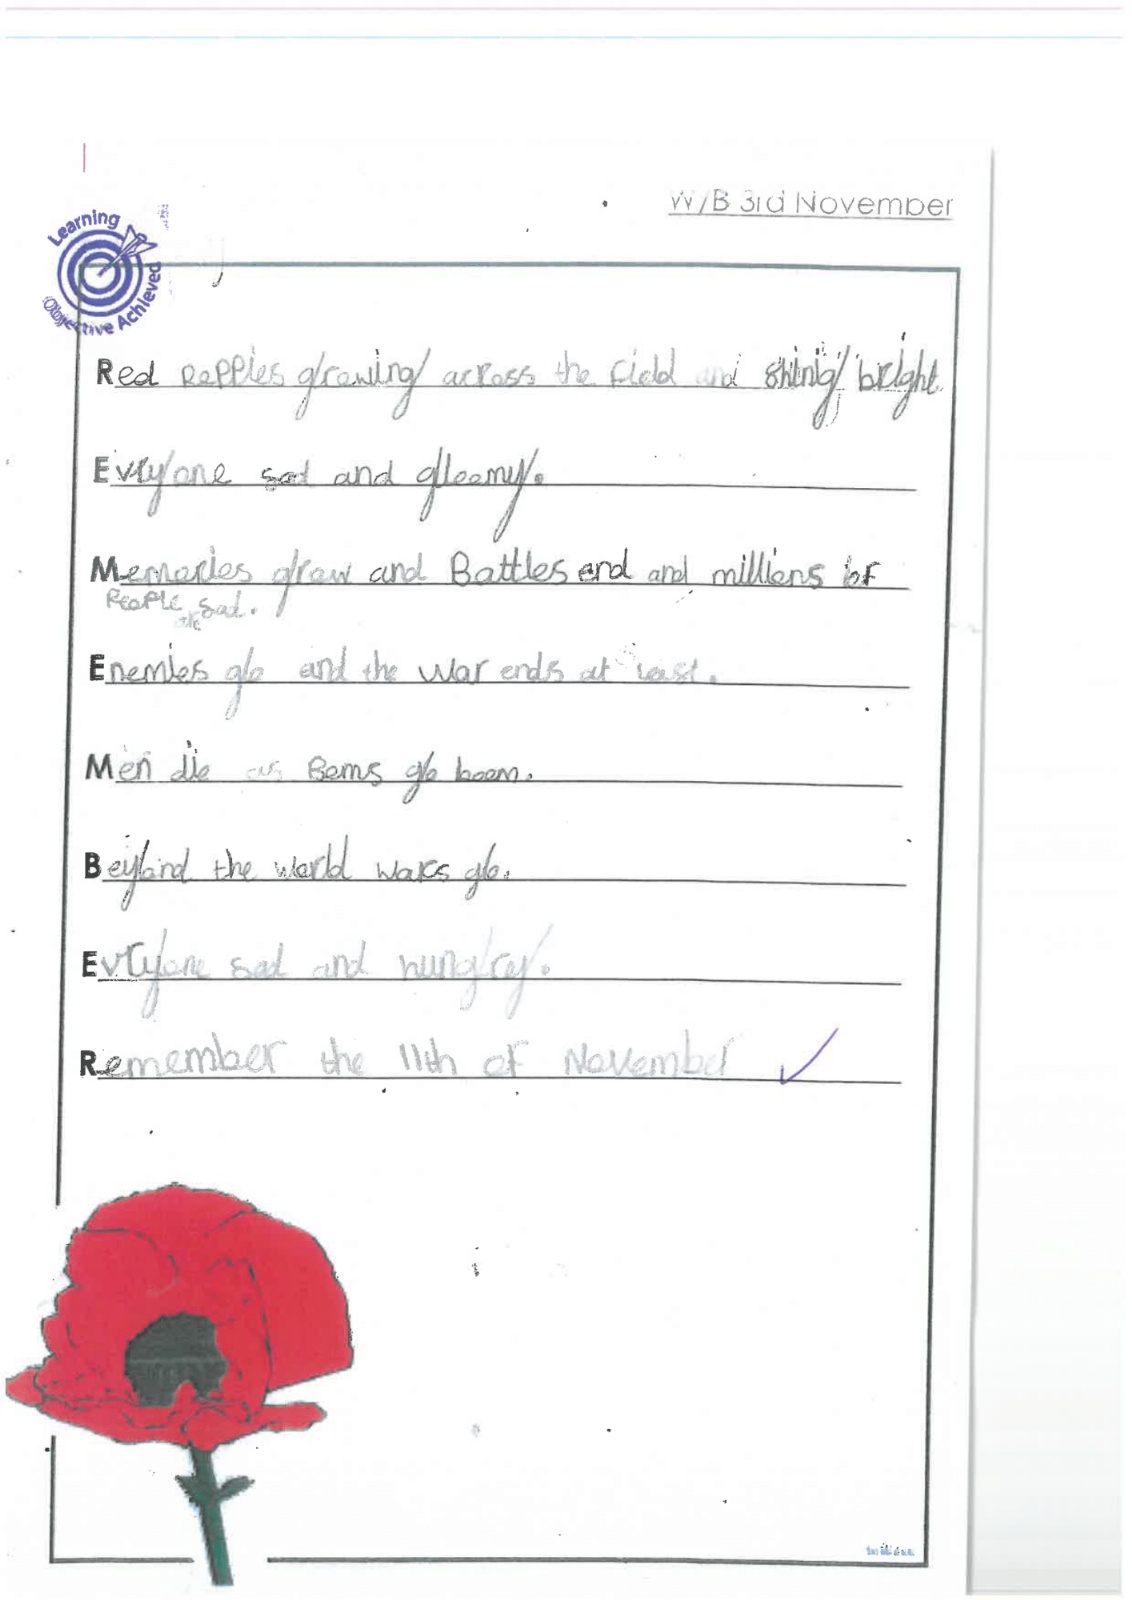 W/B 3rd November
Learning
Objective Achieved
Red Poppies growing across the field and shinig bright
Evryone sad and gloomy.
Memories grow and Battles end and millions of
People are sad.
Enemies go and the war ends at last.
Men die as Boms go boom.
Beyond the world wars go.
Evryone sad and hungry.
Remember the 11th of November